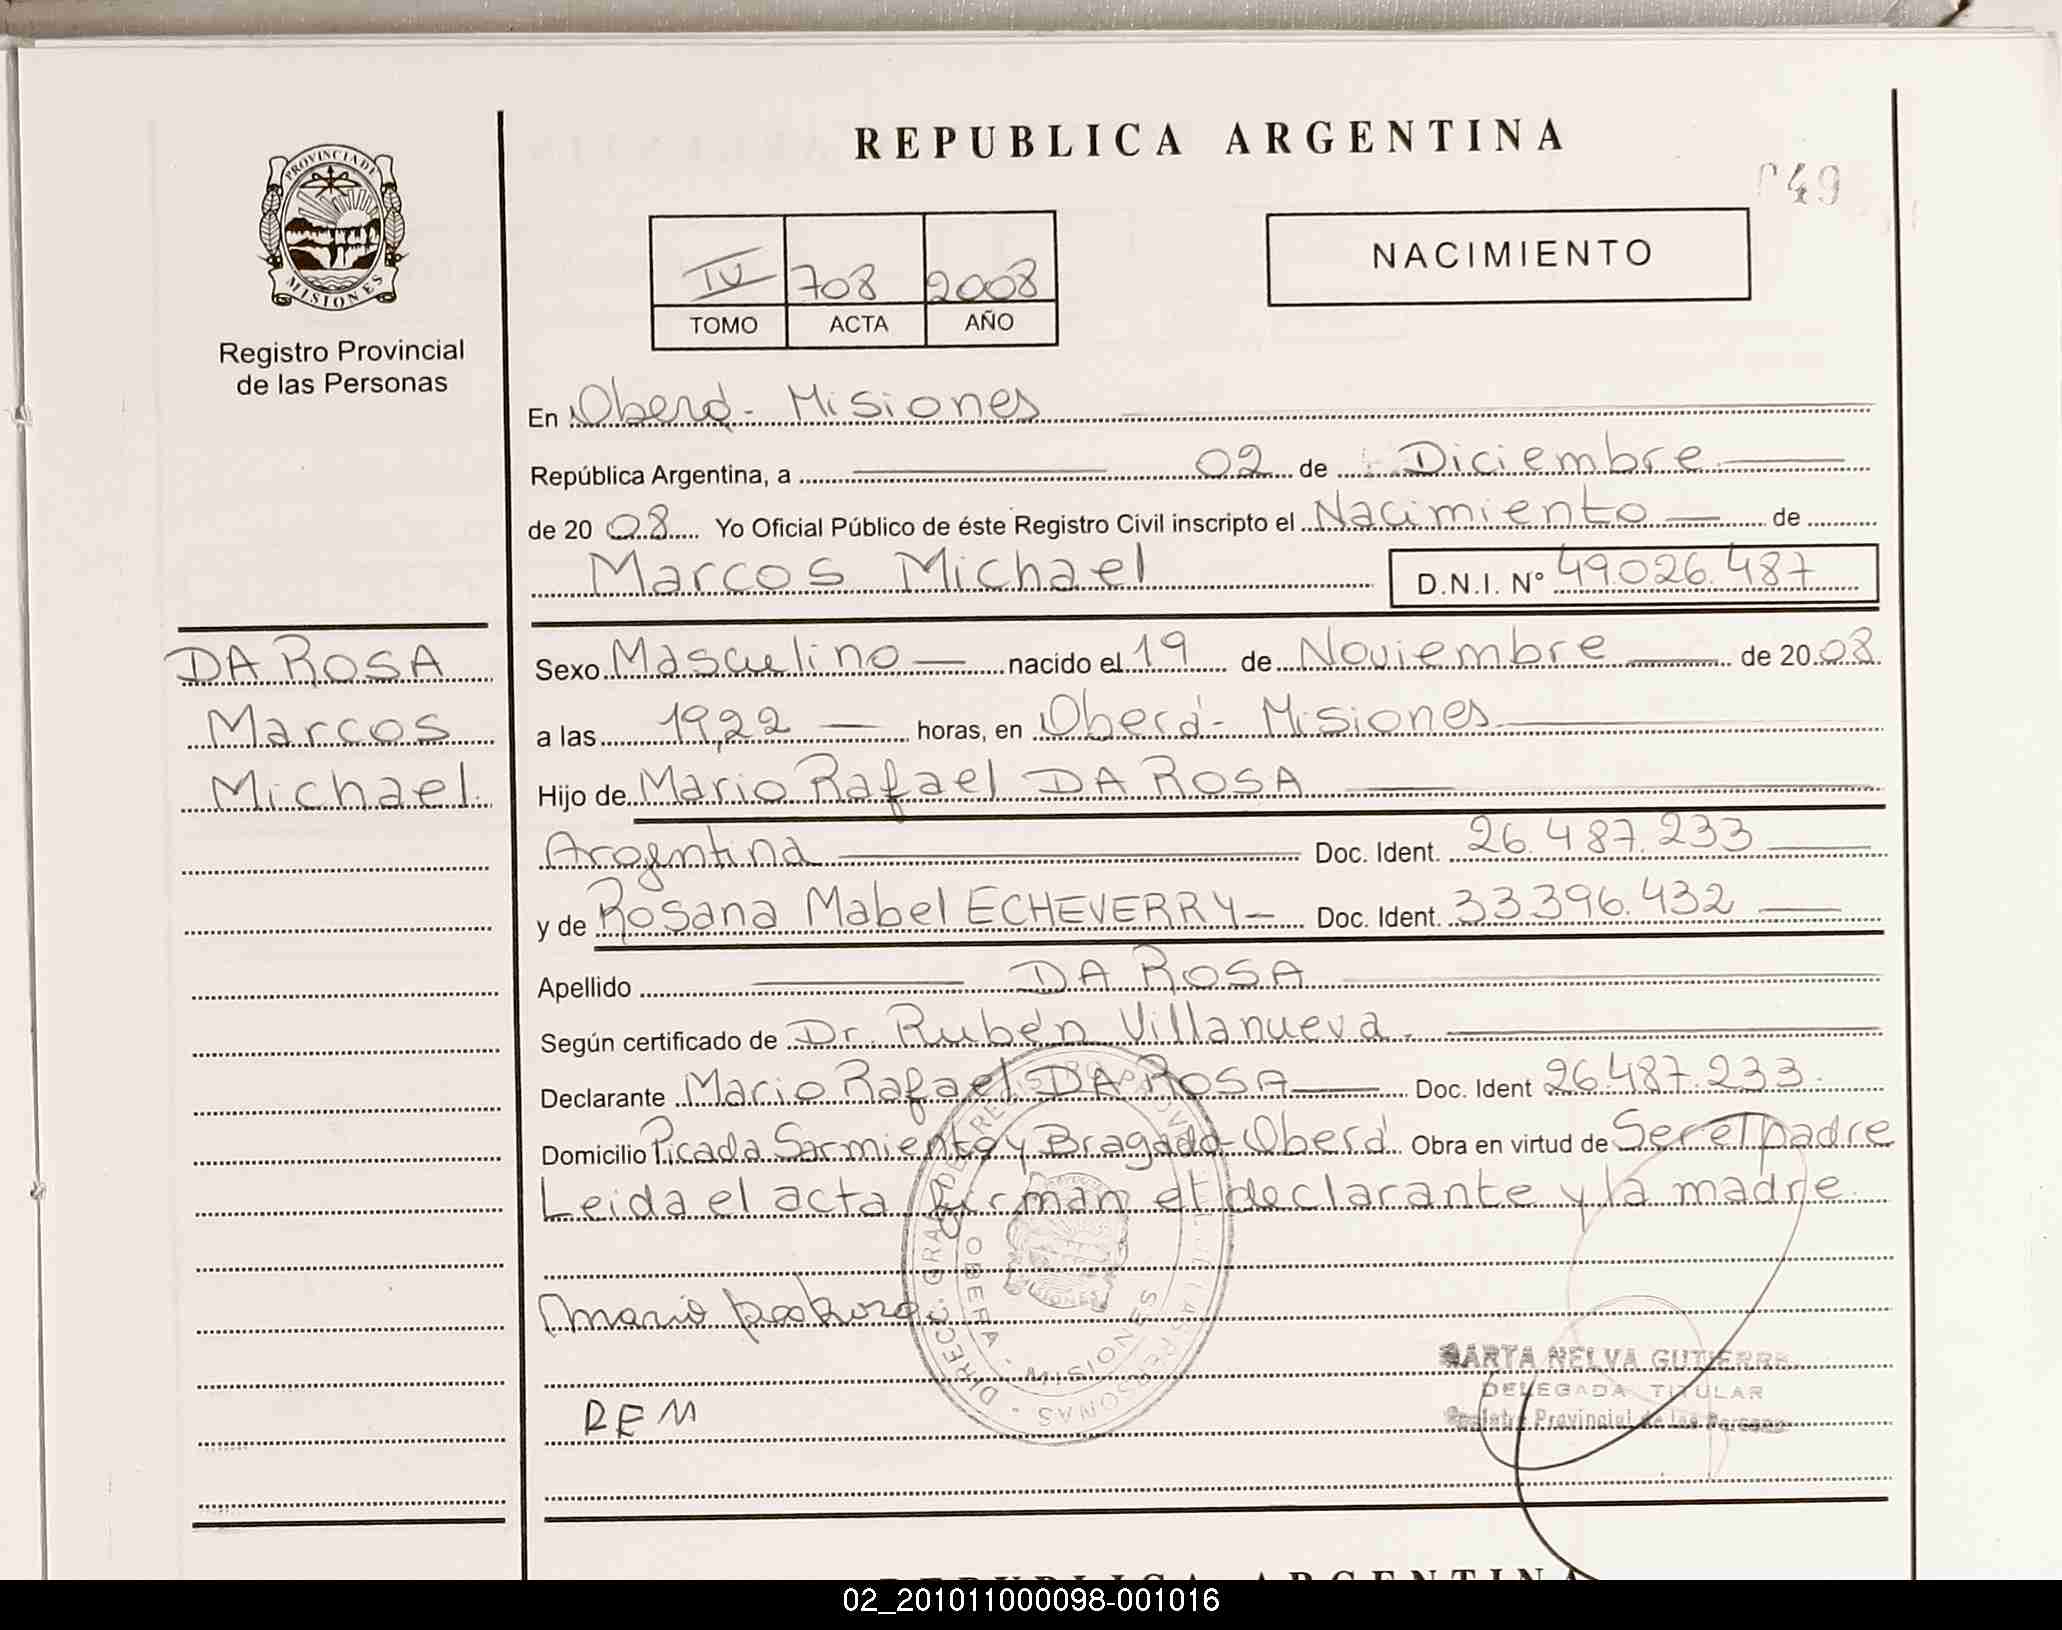 REPUBLICA ARGENTINA
49
PROVINCIA DE
MISIONES
Registro Provincial
de las Personas
IV 708 2008
TOMO ACTA AÑO
NACIMIENTO
En Oberá - Misiones
República Argentina, a 02 de Diciembre
de 20 08 Yo Oficial Público de éste Registro Civil inscripto el Nacimiento de
Marcos Michael D.N.I. N° 49.026.487
DA ROSA
Marcos
Michael.
Sexo Masculino nacido el 19 de Noviembre de 20 08
a las 19,22 horas, en Oberá - Misiones
Hijo de Mario Rafael DA ROSA
Argentina Doc. Ident. 26.487.233
y de Rosana Mabel ECHEVERRY Doc. Ident. 33.396.432
Apellido DA ROSA
Según certificado de Dr. Rubén Villanueva.
Declarante Mario Rafael DA ROSA Doc. Ident 26.487.233.
Domicilio Picada Sarmiento y Bragado - Oberá Obra en virtud de Ser el padre
Leida el acta firman el declarante y la madre
Mario
REM
OBERA - MISIONES
MARTA NELVA GUTIERRE
DELEGADA TITULAR
Registro Provincial de las Personas
REPUBLICA ARGENTINA
02_201011000098-001016